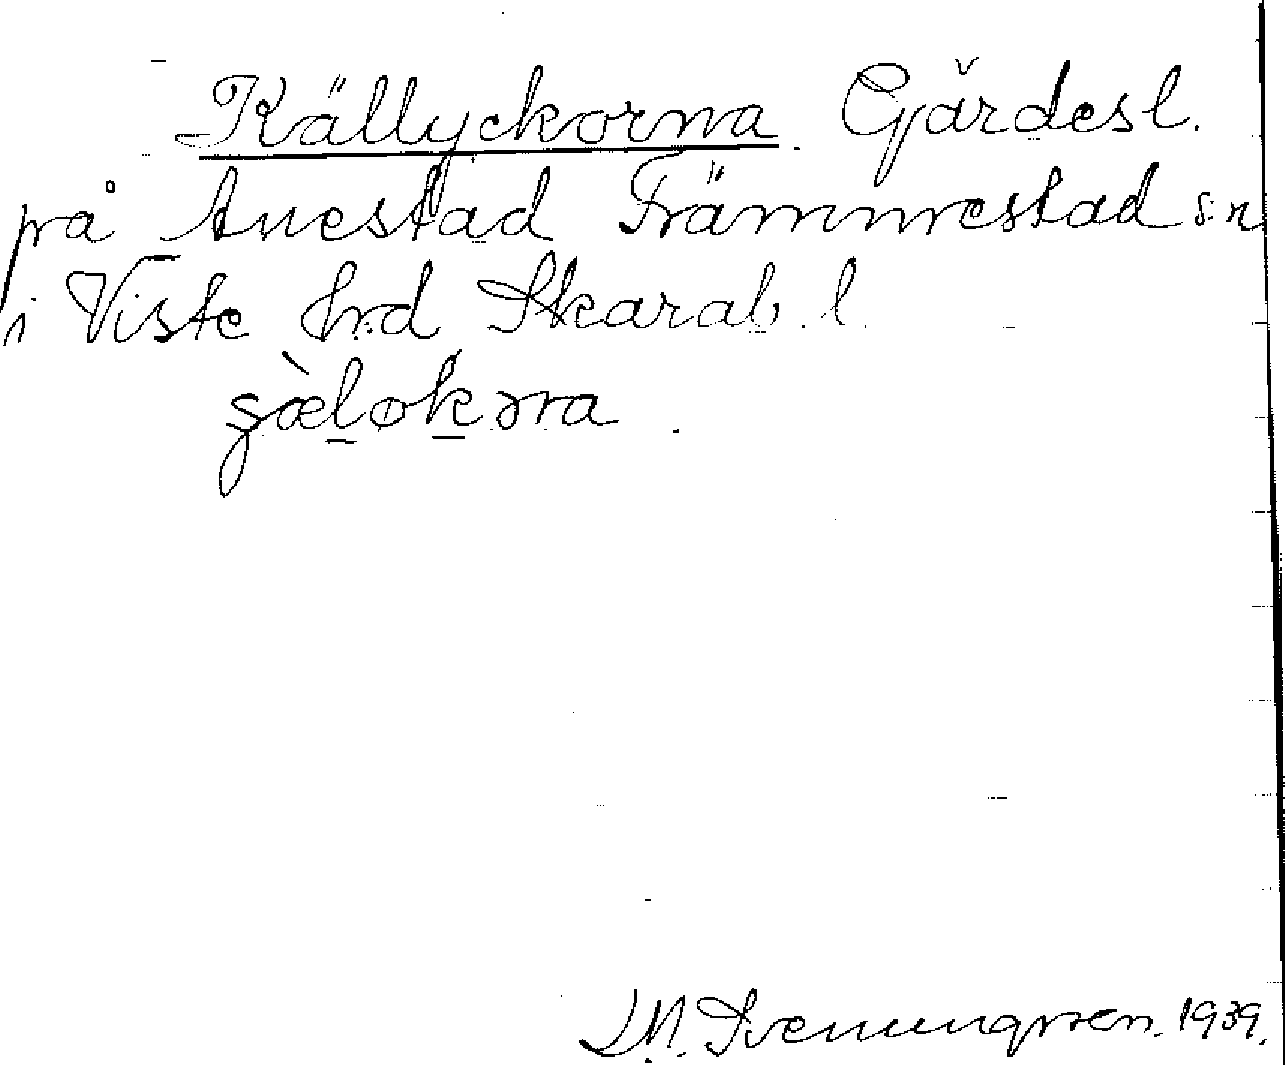 Källyckorna Gärdesl.
på Anestad Främmestad s:n
i Viste h:d Skarab. l.
D.N. Svenungsson. 1939.